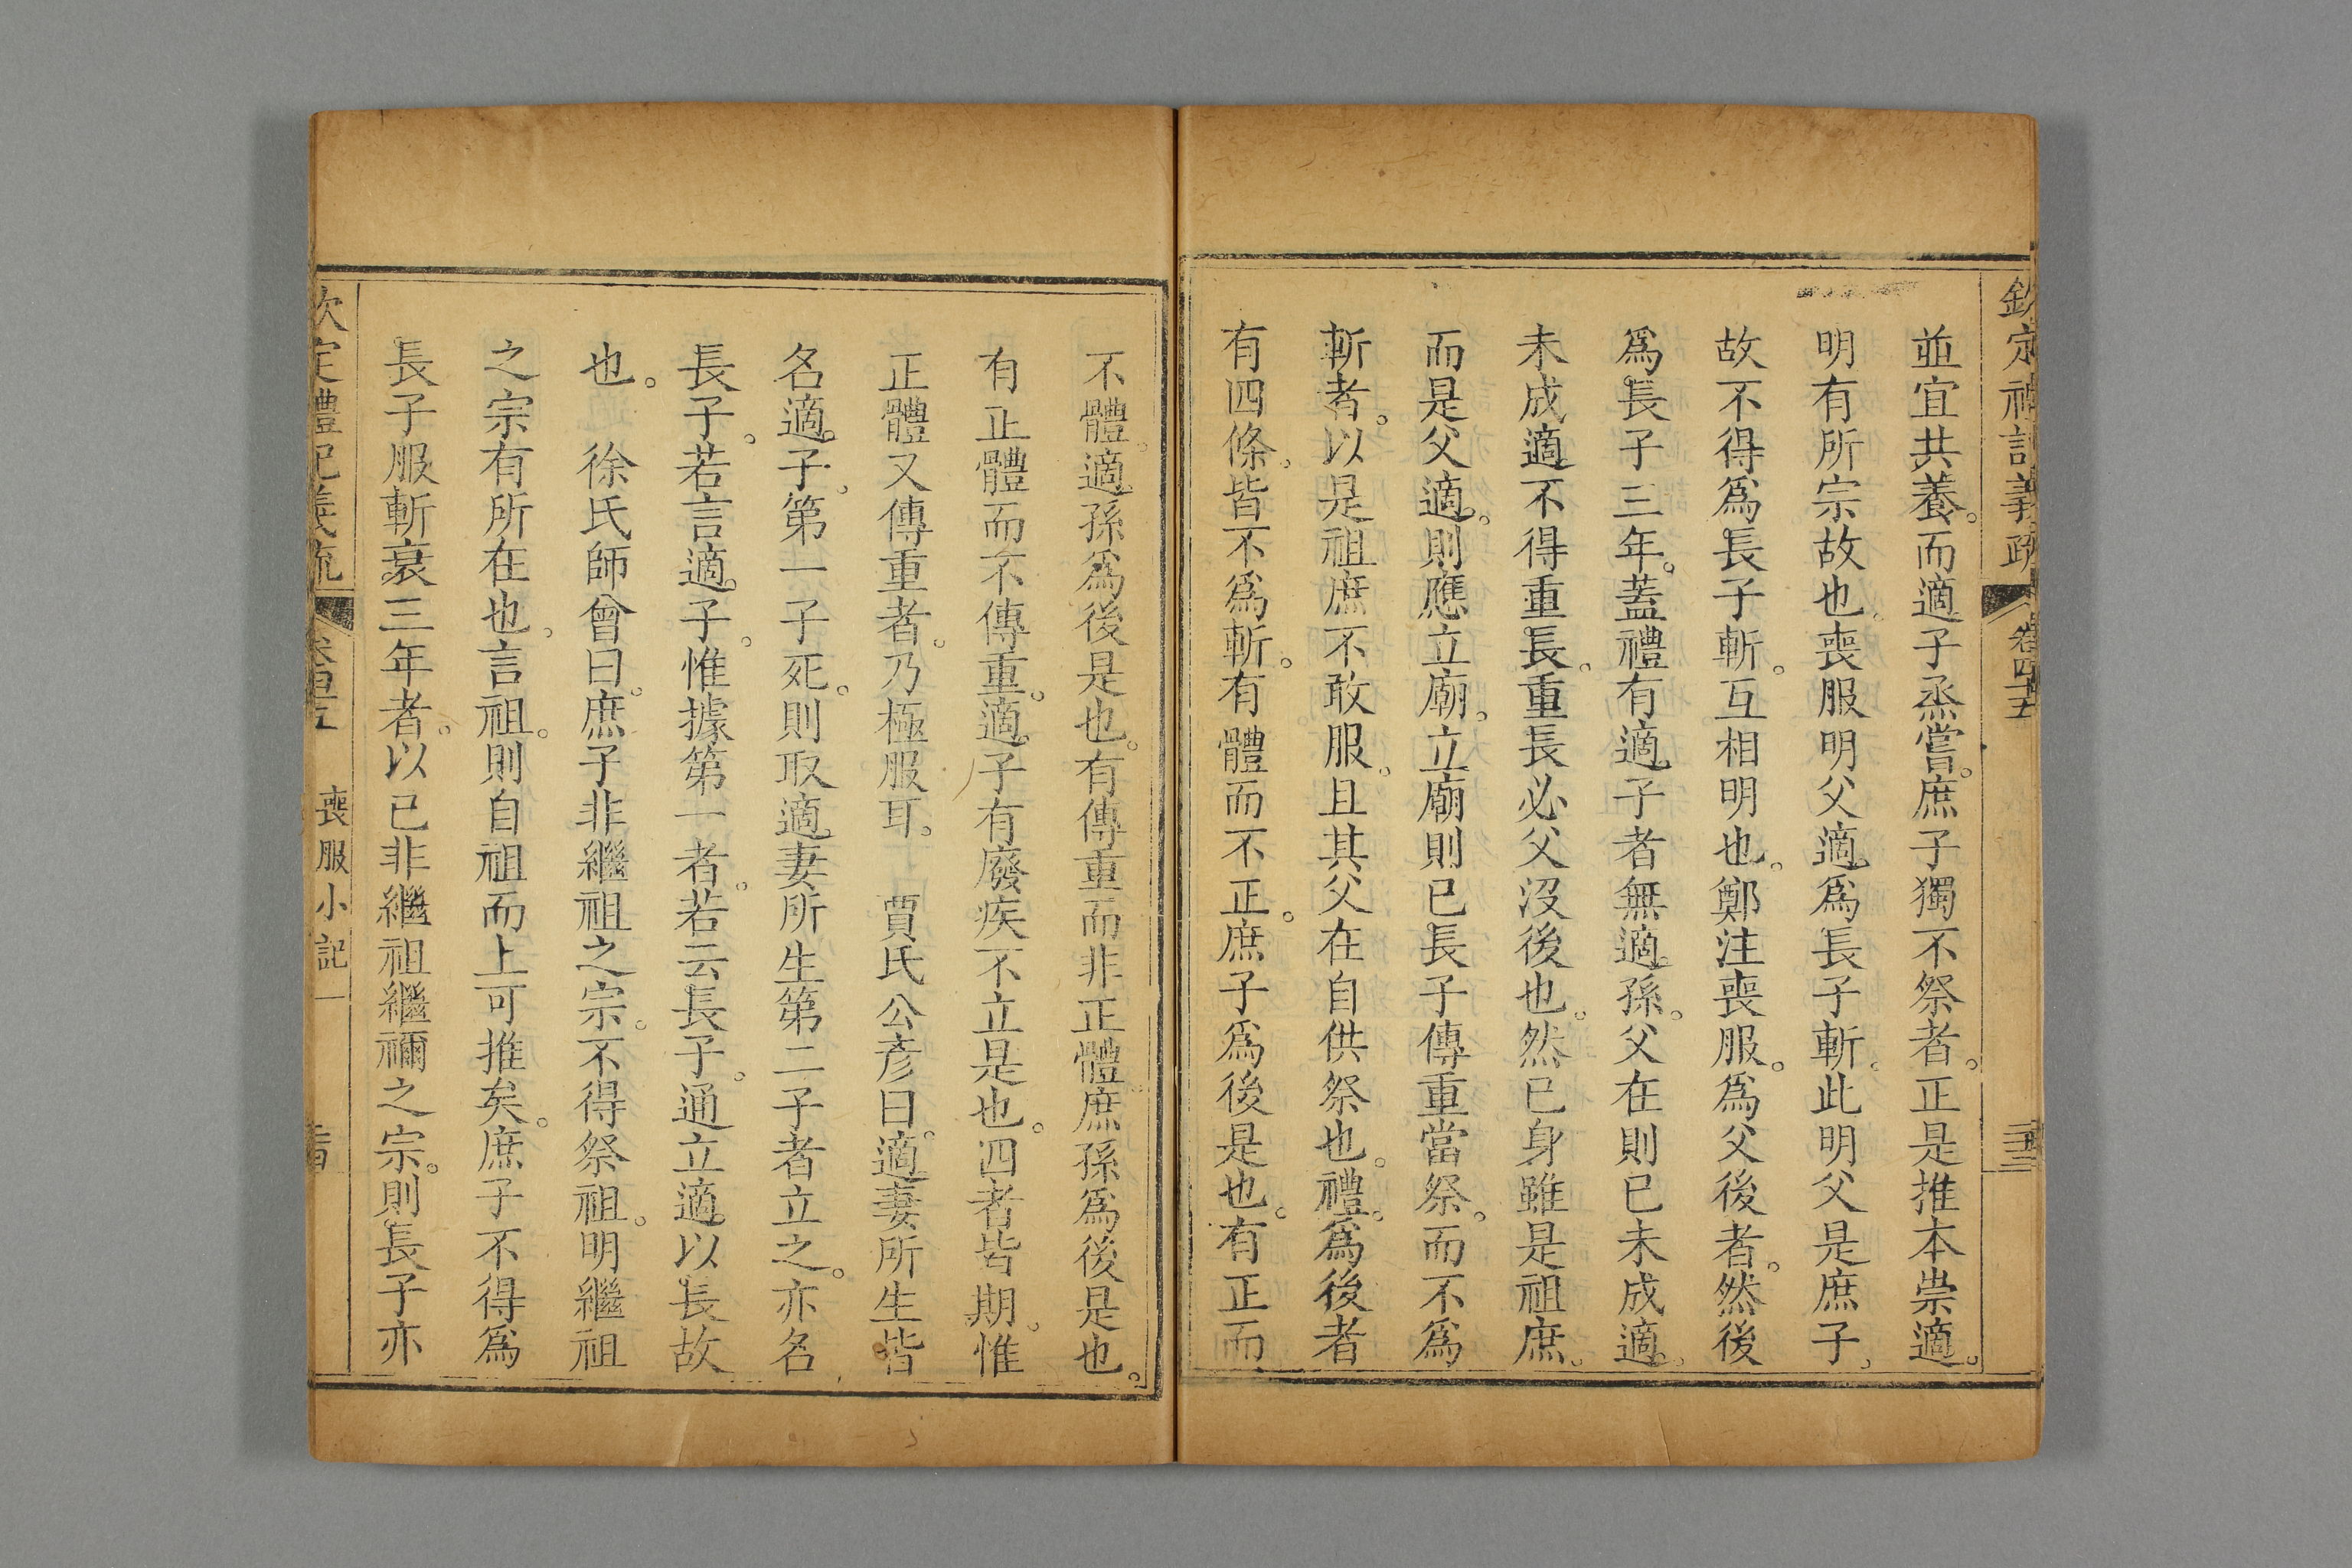 欽定禮記義疏 卷四十五
並宜共養。而適子烝嘗。庶子獨不祭者。正是推本崇適。
明有所宗故也。喪服明父適爲長子斬。此明父是庶子。
故不得爲長子斬。互相明也。鄭注喪服。爲父後者。然後
爲長子三年。蓋禮有適子者無適孫。父在則已未成適。
未成適不得重長。重長必父沒後也。然已身雖是祖庶。
而是父適。則應立廟。立廟則已長子傳重當祭。而不爲
斬者。以是祖庶不敢服。且其父在自供祭也。禮。爲後者
有四條。皆不爲斬。有體而不正。庶子爲後是也。有正而
不體。適孫爲後是也。有傳重而非正體。庶孫爲後是也。
有正體而不傳重。適子有廢疾不立是也。四者皆期。惟
正體又傳重者。乃極服耳。 賈氏公彥曰。適妻所生皆
名適子。第一子死。則取適妻所生第二子者立之。亦名
長子。若言適子。惟據第一者。若云長子。通立適以長故
也。 徐氏師曾曰。庶子非繼祖之宗。不得祭祖。明繼祖
之宗有所在也。言祖。則自祖而上可推矣。庶子不得爲
長子服斬衰三年者。以已非繼祖繼禰之宗。則長子亦
欽定禮記義疏 喪服小記一